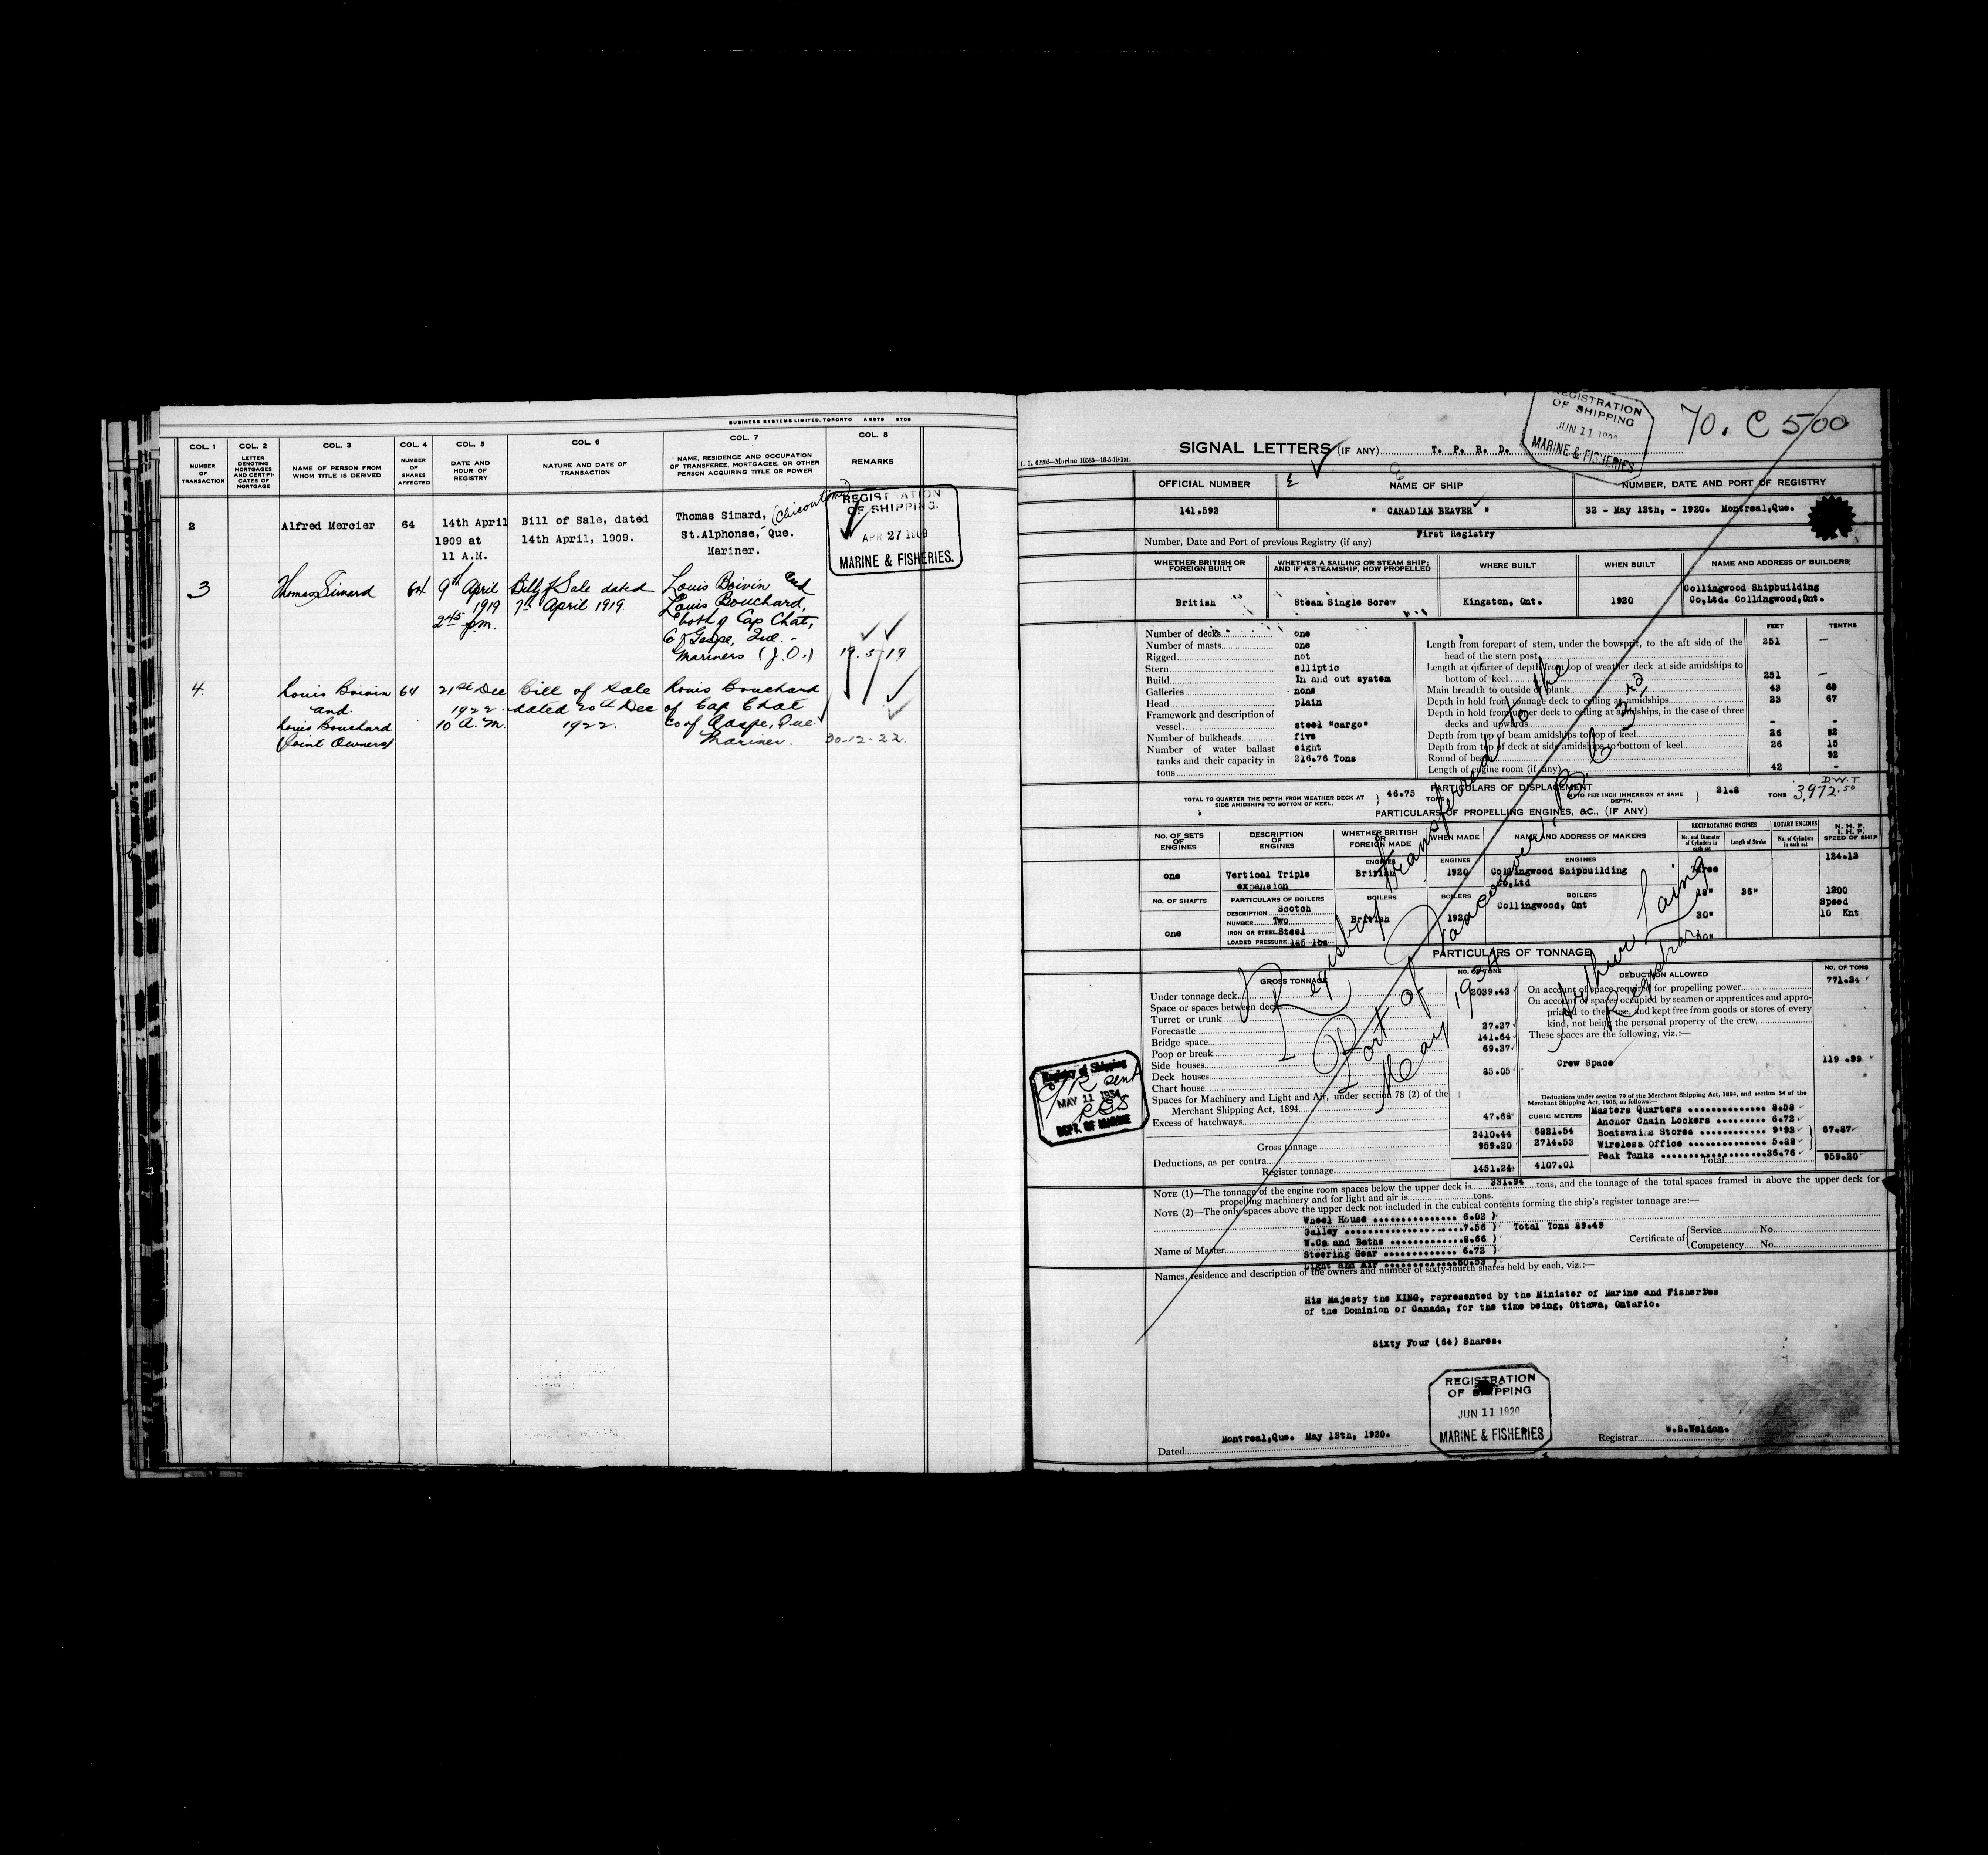 BUSINESS SYSTEMS LIMITED, TORONTO A 5675 5705
COL. 1 COL. 2 COL. 3 COL. 4 COL. 5 COL. 6 COL. 7 COL. 8
NUMBER OF TRANSACTION
LETTER DENOTING MORTGAGES AND CERTIFICATES OF MORTGAGE
NAME OF PERSON FROM WHOM TITLE IS DERIVED
NUMBER OF SHARES AFFECTED
DATE AND HOUR OF REGISTRY
NATURE AND DATE OF TRANSACTION
NAME, RESIDENCE AND OCCUPATION OF TRANSFEREE, MORTGAGEE, OR OTHER PERSON ACQUIRING TITLE OR POWER
REMARKS
2 Alfred Mercier 64 14th April Bill of Sale, dated Thomas Simard, (Chicoutimi)
1909 at 14th April, 1909. St.Alphonse, Que.
11 A.M. Mariner.
REGISTRATION
OF SHIPPING.
APR 27 1909
MARINE & FISHERIES.
3 Thomas Simard 64 9th April Bill of Sale dated Louis Boivin and
1919 7th April 1919. Louis Bouchard,
2 45 p.m. both of Cap Chat,
C of Gaspe, Que. -
Mariners (J.O.) 19.5-19
4. Louis Boivin 64 21st Dec Bill of Sale Louis Bouchard
and 1922 dated 20th Dec of Cap Chat
Louis Bouchard 10 A.M. 1922. Co of Gaspe, Que.
(Joint Owners) Mariner. 30-12-22.
REGISTRATION
OF SHIPPING
JUN 11 1920
MARINE & FISHERIES
70. C 500
SIGNAL LETTERS (IF ANY) T. P. R. D.
OFFICIAL NUMBER NAME OF SHIP NUMBER, DATE AND PORT OF REGISTRY
141.592 " CANADIAN BEAVER " 32 - May 13th, - 1920. Montreal,Que.
Number, Date and Port of previous Registry (if any) First Registry
WHETHER BRITISH OR FOREIGN BUILT
WHETHER A SAILING OR STEAM SHIP; AND IF A STEAMSHIP, HOW PROPELLED
WHERE BUILT
WHEN BUILT
NAME AND ADDRESS OF BUILDERS
British Steam Single Screw Kingston, Ont. 1920 Collingwood Shipbuilding
Co,Ltd. Collingwood,Ont.
FEET TENTHS
Number of decks one
Number of masts one
Rigged not
Stern elliptic
Build In and out system
Galleries none
Head plain
Framework and description of
vessel steel "cargo"
Number of bulkheads five
Number of water ballast eight
tanks and their capacity in 216.76 Tons
tons
Length from forepart of stem, under the bowsprit, to the aft side of the
head of the stern post 251 —
Length at quarter of depth from top of weather deck at side amidships to
bottom of keel 251 —
Main breadth to outside of plank 43 60
Depth in hold from tonnage deck to ceiling at amidships 23 67
Depth in hold from upper deck to ceiling at amidships, in the case of three
decks and upwards - -
Depth from top of beam amidships to top of keel 26 92
Depth from top of deck at side amidships to bottom of keel 26 15
Round of beam 92
Length of engine room (if any) 42 -
PARTICULARS OF DISPLACEMENT
TOTAL TO QUARTER THE DEPTH FROM WEATHER DECK AT SIDE AMIDSHIPS TO BOTTOM OF KEEL. 46.75 TONS
DITTO PER INCH IMMERSION AT SAME DEPTH. 21.8 TONS
D.W.T.
3,972.50
PARTICULARS OF PROPELLING ENGINES, &C., (IF ANY)
NO. OF SETS OF ENGINES
DESCRIPTION OF ENGINES
WHETHER BRITISH OR FOREIGN MADE
WHEN MADE
NAME AND ADDRESS OF MAKERS
RECIPROCATING ENGINES
No. and Diameter of Cylinders in each set
Length of Stroke
ROTARY ENGINES
No. of Cylinders in each set
N. H. P.
I. H. P.
SPEED OF SHIP
ENGINES ENGINES ENGINES
one Vertical Triple British 1920 Collingwood Shipbuilding Three 124.13
expansion Co,Ltd
NO. OF SHAFTS PARTICULARS OF BOILERS BOILERS BOILERS BOILERS 36" 1200
DESCRIPTION Scotch Collingwood, Ont Speed
NUMBER Two British 1920 30" 10 Knt
one IRON OR STEEL Steel
LOADED PRESSURE 185 lbs
PARTICULARS OF TONNAGE
GROSS TONNAGE NO. OF TONS
Under tonnage deck 2039.43
Space or spaces between decks
Turret or trunk
Forecastle 27.27
Bridge space 141.64
Poop or break 69.37
Side houses
Deck houses 85.05
Chart house
Spaces for Machinery and Light and Air, under section 78 (2) of the
Merchant Shipping Act, 1894
Excess of hatchways 47.68
CUBIC METERS
Gross tonnage 2410.44 6821.54
Deductions, as per contra 959.20 2714.53
Register tonnage 1451.24 4107.01
DEDUCTION ALLOWED NO. OF TONS
On account of space required for propelling power 771.34
On account of spaces occupied by seamen or apprentices and appro-
priated to their use, and kept free from goods or stores of every
kind, not being the personal property of the crew
These spaces are the following, viz.:—
Crew Space 119.99
Deductions under section 79 of the Merchant Shipping Act, 1894, and section 54 of the
Merchant Shipping Act, 1906, as follows:—
Masters Quarters 8.58
Anchor Chain Lockers 6.72
Boatswains Stores 9.93 67.87
Wireless Office 5.88
Peak Tanks 36.76
Total 959.20
Registry transferred to the
Port of Vancouver, B C 3rd
May 1934
Arthur Laing
Registrar
Registry of Shipping
C/R sent
MAY 11 1934
DEPT. OF MARINE
NOTE (1)—The tonnage of the engine room spaces below the upper deck is 331.94 tons, and the tonnage of the total spaces framed in above the upper deck for
propelling machinery and for light and air is tons.
NOTE (2)—The only spaces above the upper deck not included in the cubical contents forming the ship's register tonnage are:—
Wheel House 6.02 )
Galley 7.56 ) Total Tons 89.49
W.Cs and Baths 8.66 )
Steering Gear 6.72 )
Light and Air 60.53 )
Name of Master
Certificate of { Service No.
Competency No.
Names, residence and description of the owners and number of sixty-fourth shares held by each, viz.:—
His Majesty the KING, represented by the Minister of Marine and Fisheries
of the Dominion of Canada, for the time being, Ottawa, Ontario.
Sixty Four (64) Shares.
REGISTRATION
OF SHIPPING
JUN 11 1920
MARINE & FISHERIES
Dated Montreal,Que. May 13th, 1920. Registrar W.S.Weldon.